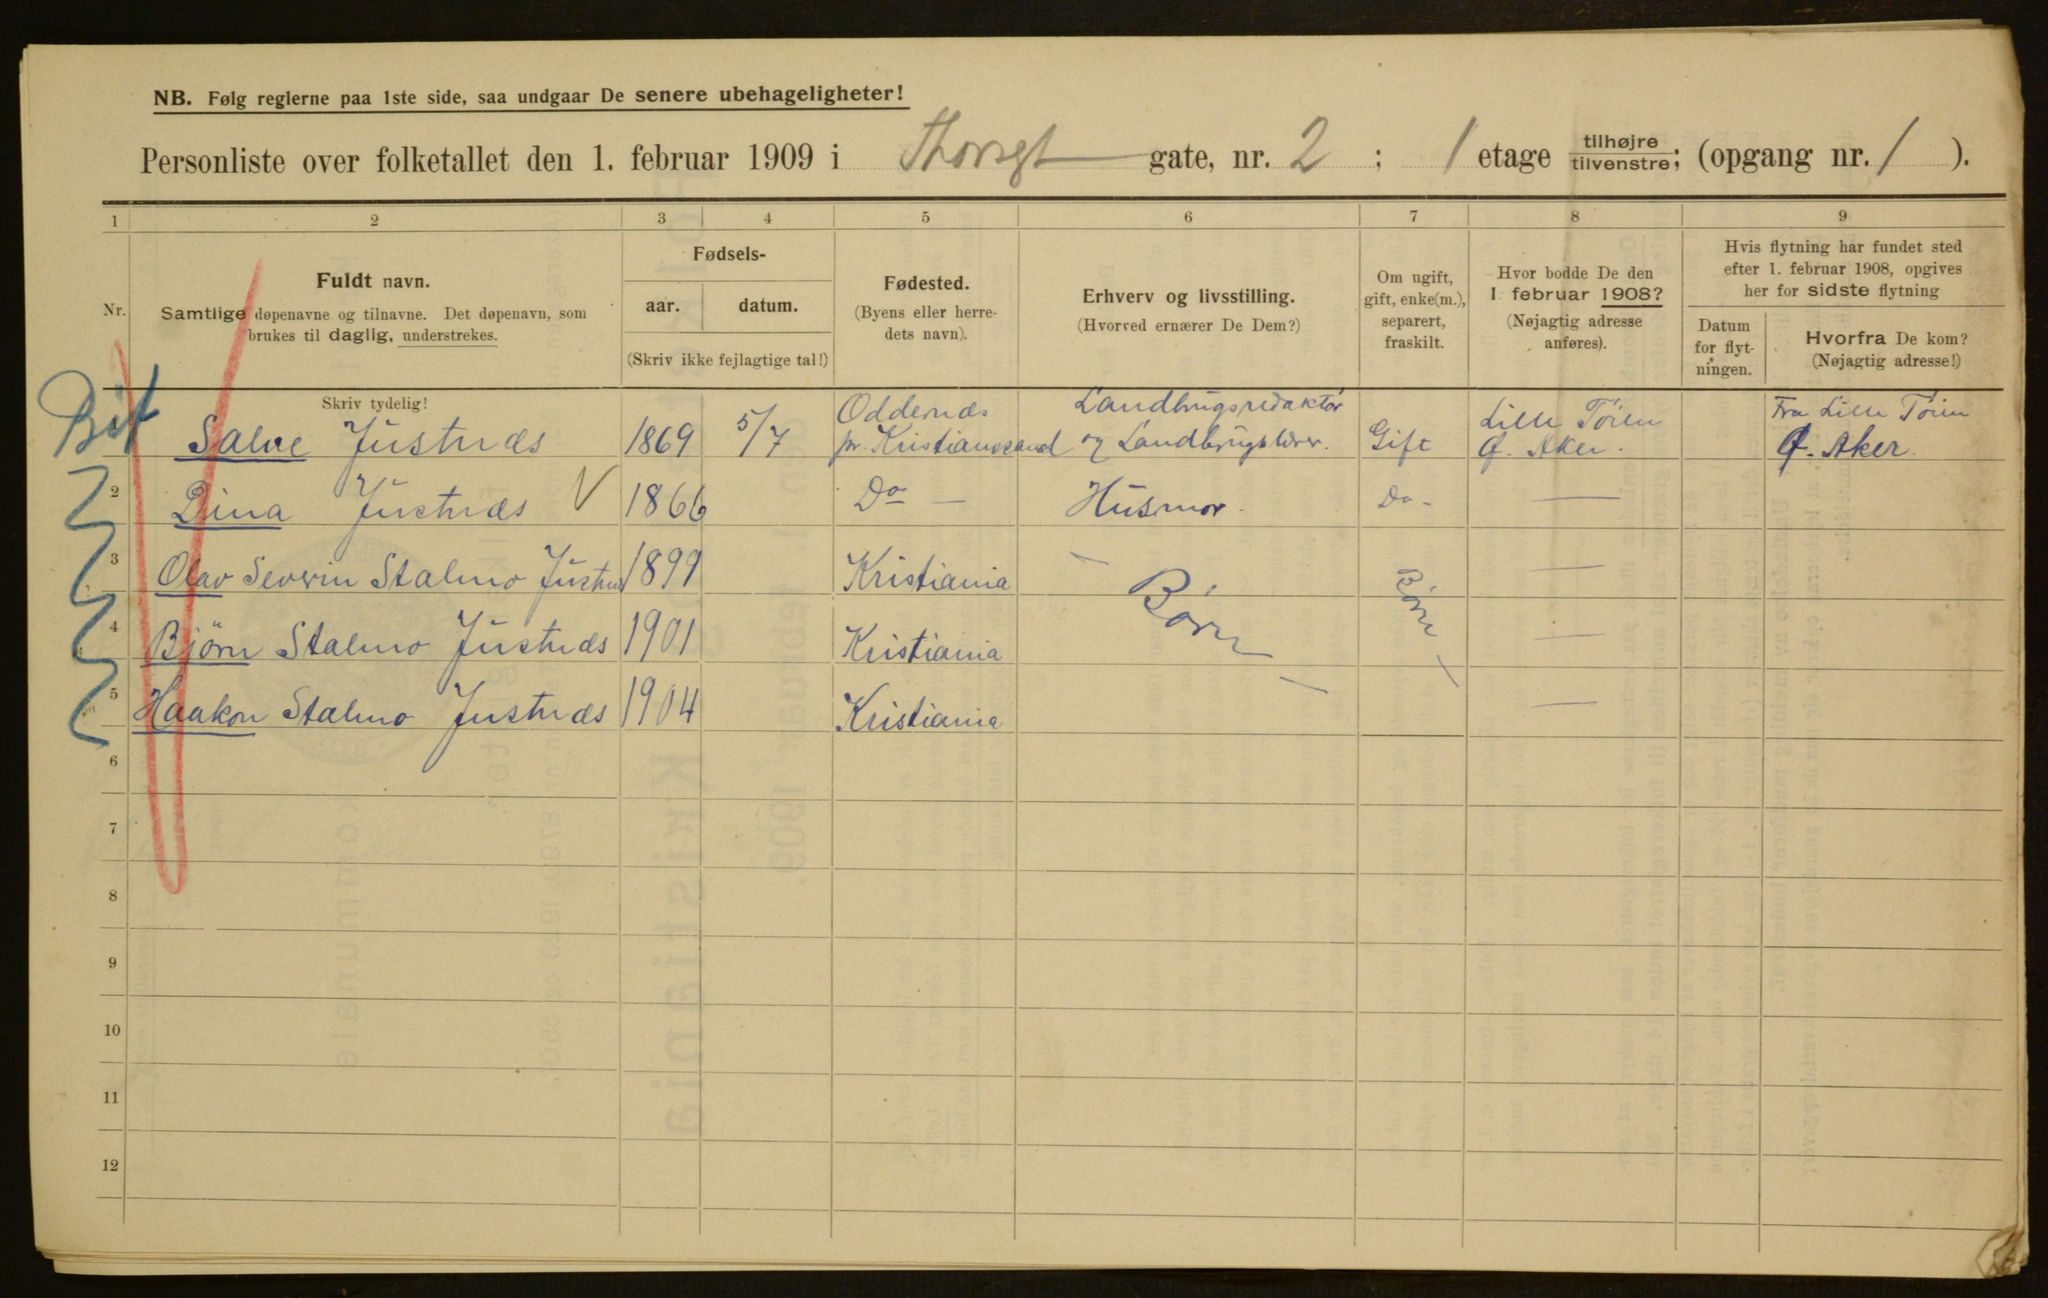 NB. Følg reglerne paa 1ste side, saa undgaar De senere ubehageligheter!
Personliste over folketallet den 1. februar 1909 i Thorsgt gate, nr. 2 ; 1 etage tilhøjre tilvenstre; (opgang nr. 1 ).
1 2 3 4 5 6 7 8 9
Nr.
Fuldt navn.
Samtlige døpenavne og tilnavne. Det døpenavn, som
brukes til daglig, understrekes.
Fødsels-
aar. datum.
(Skriv ikke fejlagtige tal!)
Fødested.
(Byens eller herre-
dets navn).
Erhverv og livsstilling.
(Hvorved ernærer De Dem?)
Om ugift,
gift, enke(m.),
separert,
fraskilt.
Hvor bodde De den
1 februar 1908?
(Nøjagtig adresse
anføres).
Hvis flytning har fundet sted
efter 1. februar 1908, opgives
her for sidste flytning
Datum
for flyt-
ningen.
Hvorfra De kom?
(Nøjagtig adresse!)
Skriv tydelig!
Oddernæs Landbrugsredaktør Lille Töien Fra Lille Töien
Salve Justnæs 1869 5/7 pr. Kristianssand og Landbrugslærer. Gift Ø. Aker. Ø. Aker.
2 Dina Justnæs V 1866 Do — Husmor. Do - —
3 Olav Severin Stalmo Justnæs 1899 Kristiania — Børn — Børn — —
4 Bjørn Stalmo Justnæs 1901 Kristiania —
5 Haakon Stalmo Justnæs 1904 Kristiania —
6
7
8
9
10
11
12